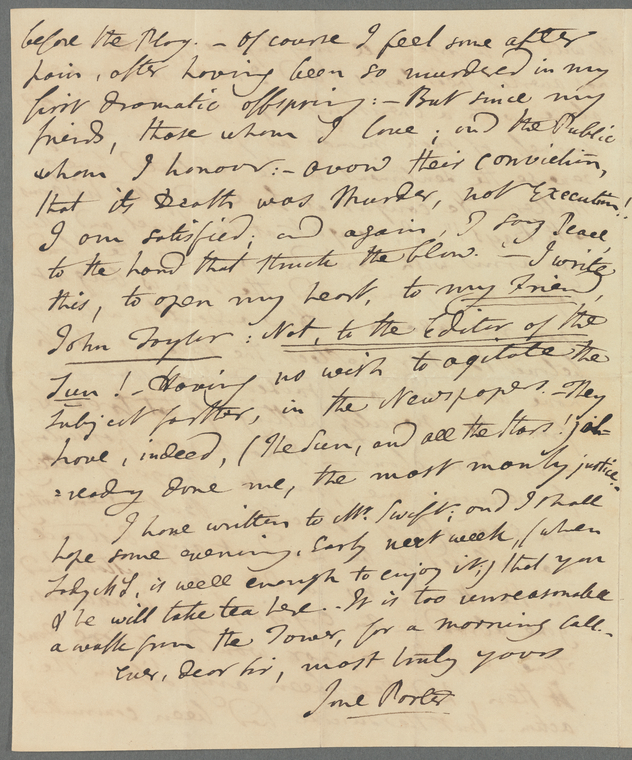 before the Play. — Of course I feel some after
pain, after having been so murdered in my
first dramatic offspring: — But since my
friends, those whom I love; and the Public
whom I honour: — avow their conviction,
that its Death was Murder, not Execution!
I am satisfied; and again, I say Peace,
to the hand that struck the blow. — I write
this, to open my heart, to my Friend,
John Taylor: Not, to the Editor of the
Sun! — Having no wish to agitate the
subject farther, in the Newspapers. — They
have, indeed, (The Sun, and all the Stars!) al=
=ready done me, the most manly justice. —
I have written to Mr. Swift; and I shall
hope some evening, early next week, (when
Lady is well enough to enjoy it;) that you
& he will take tea here. — It is too unreasonable
a walk from the Tower, for a morning call. —
Ever, dear Sir, most truly yours
Jane Porter